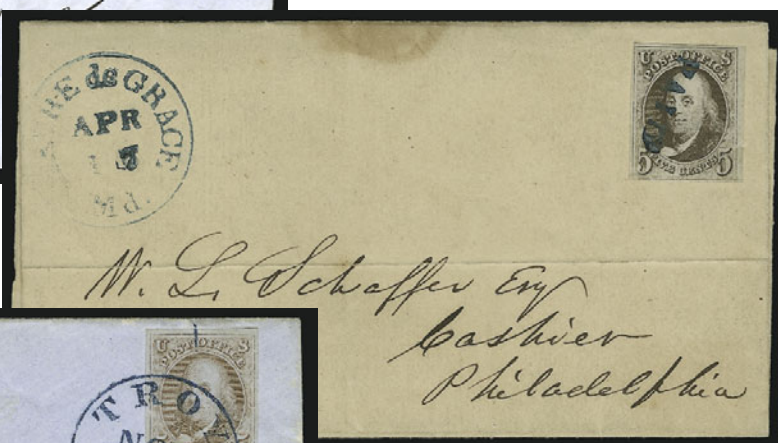 de GRACE
APR
Md.
U S
POST OFFICE
PAID
5 FIVE CENTS 5
W. L. Schaffer Esq
Cashier
Philadelphia
U S
POST OFFICE
TROY
NO